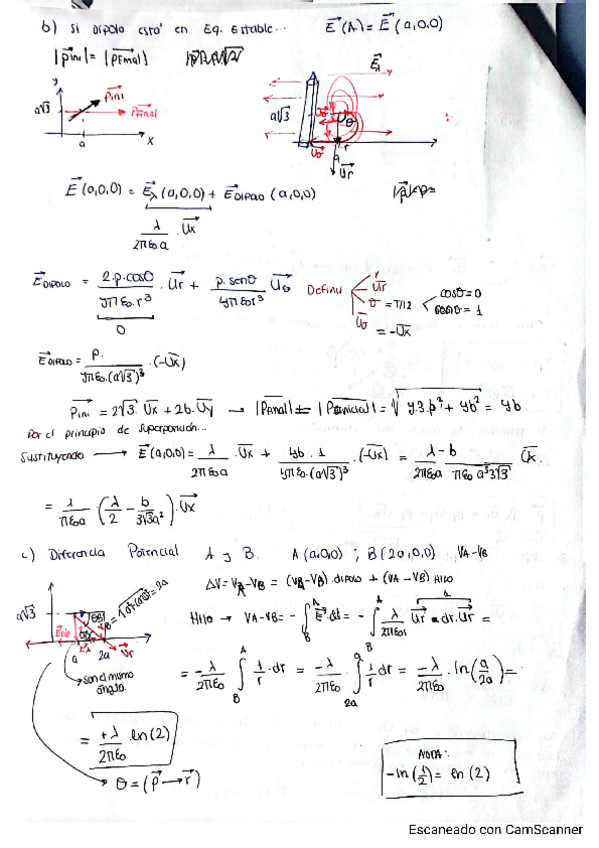 b) Si Dipolo está en Eq. Estable... E⃗(A) = E⃗(a,0,0)
|p⃗ini| = |p⃗Final|
y p⃗ini E⃗λ
a√3 p⃗Final a√3 U⃗θ
a x U⃗θ r
a U⃗r
E⃗(a,0,0) = E⃗λ(a,0,0) + E⃗DIPOLO(a,0,0)
λ/2πε₀a · U⃗x
E⃗DIPOLO = 2·p·cosθ/4πε₀·r³ · U⃗r + p·senθ/4πε₀r³ U⃗θ Definu r⃗
U⃗r
0 θ = π/2 cosθ=0 senθ=1
U⃗θ = -U⃗x
E⃗DIPOLO = p·/4πε₀·(a√3)³ · (-U⃗x)
p⃗ini = 2√3· U⃗x + 2b· U⃗y → |p⃗Final| = |p⃗inicial| = √4·3·b² + 4b² = 4b
Por el principio de superposición...
Sustituyendo → E⃗(a,0,0) = λ/2πε₀a · U⃗x + 4b·1/4πε₀·(a√3)³ · (-U⃗x) = λ - b/2πε₀a πε₀a³3√3 U⃗x.
= λ/πε₀a (λ/2 - b/3√3a²) · U⃗x
c) Diferencia Potencial A y B. A(a,0,0) ; B(2a,0,0) VA-VB
ΔV = VA-VB = (VA-VB) DIPOLO + (VA-VB) HILO
a√3 2a
a 2a U⃗r
son el mismo ángulo.
HILO → VA-VB = - ∫ᴮᴬ E⃗·dl⃗ = - ∫ᴮᴬ λ/2πε₀r U⃗r · dr·U⃗r =
= -λ/2πε₀ ∫ᴮᴬ 1/r·dr = -λ/2πε₀ · ∫₂ₐᵃ 1/r dr = -λ/2πε₀ · ln(a/2a) =
= +λ/2πε₀ · ln(2)
θ = (p⃗ → r⃗)
NOTA:
-ln(1/2) = ln(2)
Escaneado con CamScanner